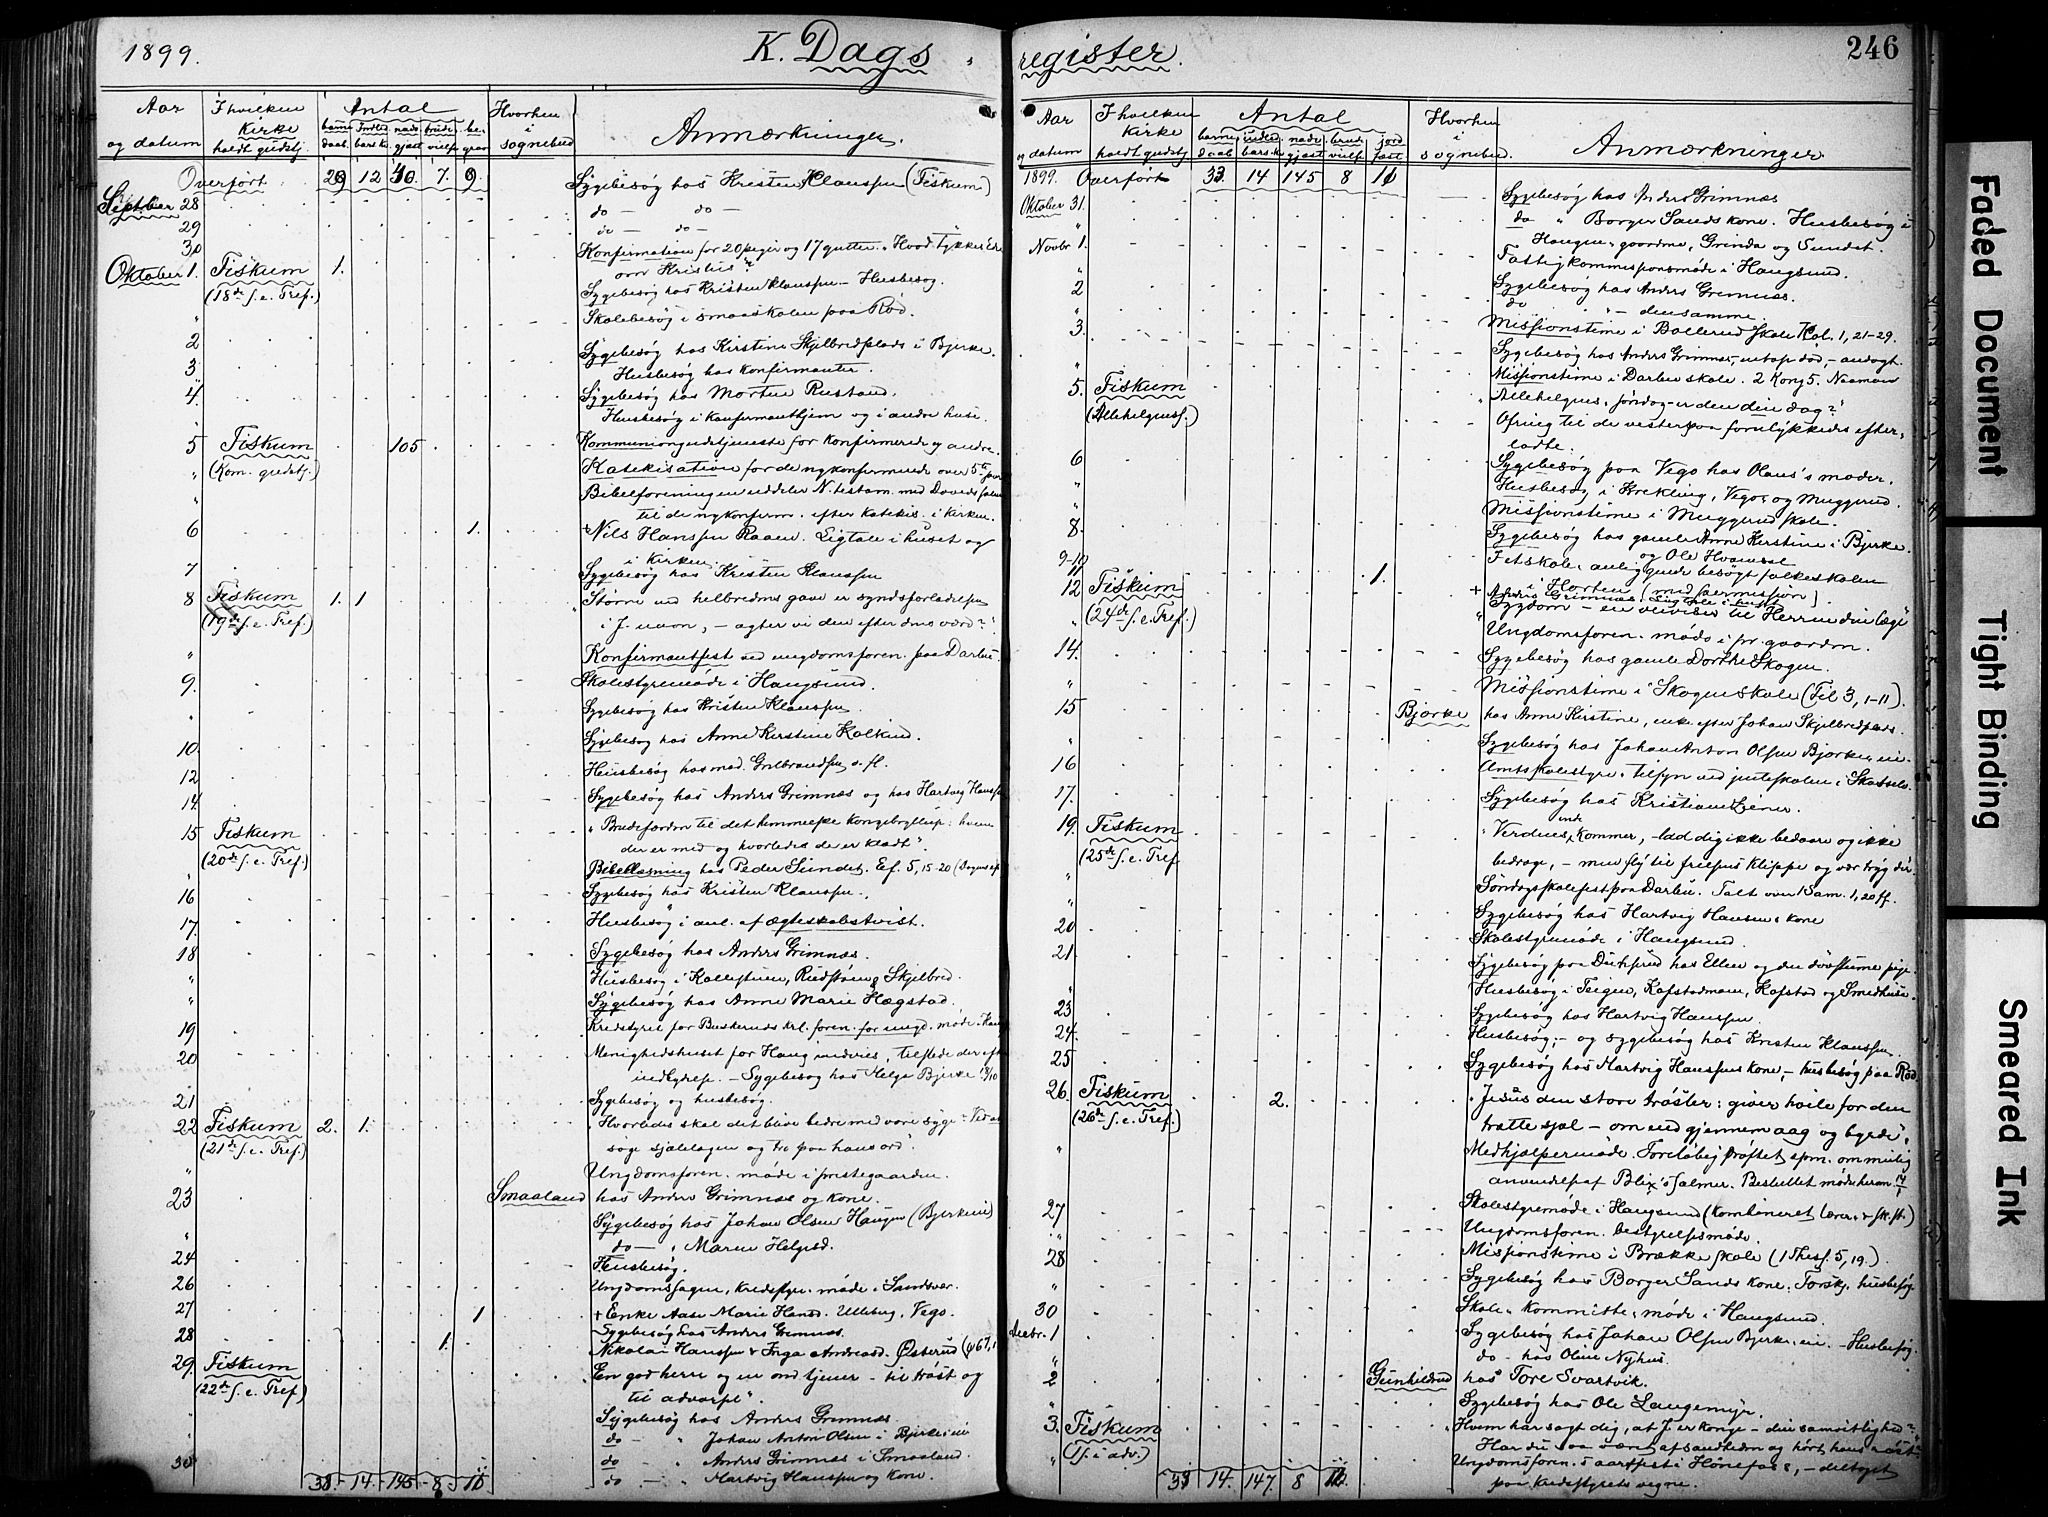 1899.
K. Dags
Aar og datum
I hvilken Kirke holdt gudstj.
Antal
Hvorhen i sognebud
Anmærkninger.
Overført 12 7. 9 Sygebesøg hos Kristen Klaussen (Fiskum)
Septber 28 do — do —
29 do — do —
30 Konfirmation for 20 piger og 17 gutter. "Hvad tykkes Eder
Oktober 1. Fiskum 1. om Kristus"?
(18de s. e. Tref.) Sygebesøg hos Kristen Klaussen — Husbesøg.
" Skolebesøg i smaaskolen paa Rød.
2 Sygebesøg hos Kirstine Skjelbredplads i Bjerke.
3. Husbesøg hos konfirmanter.
4. Sygebesøg hos Morten Rustand.
Husbesøg i konfirmanthjem og i andre huse.
5 Fiskum 105 Kommuniongudstjeneste for konfirmerede og andre.
(Kom. gudstj.) Katekisation for de nykonfirmerede over 5te part
" Bibelforeningen uddeler N. testam. med Davids salmer
" til de nykonfirm. efter katekis. i kirken.
6 1. + Nils Hanssen Raaen. Ligtale i huset og
i kirken.
7 Sygebesøg hos Kristen Klaussen
8 Fiskum 1. 1 "Større end helbredens gave er syndsforladelsen
(19de s. e. Tref.) i J. navn, — agter vi den efter dens værd?"
" Konfirmantfest ved ungdomsforen. paa Darbu.
9. Skolestyremøde i Haugsund.
" Sygebesøg hos Kristen Klaussen.
Sygebesøg hos Anne Kirstine Kolkind.
10. Husbesøg hos mad. Gulbrandsen o. fl.
12 Sygebesøg hos Anders Grimnæs og hos Hartvig Hanssen
14.
15 Fiskum "Budefærden til det himmelske kongebryllup: hvem
(20de s. e. Tref.) der er med og hvorledes de er klædt".
" Bibellæsning hos Peder Sundet. Ef. 5, 15-20 (Dagens ep.
16 Sygebesøg hos Kristen Klaussen.
17. Husbesøg i anl. af ægteskabstvist.
18 Sygebesøg hos Anders Grimnæs.
" Husbesøg i Kollestuen, Rudstøen & Skjelbred.
" Sygebesøg hos Anne Marie Hægstad.
19 Kredsstyret for Buskeruds krl. foren. for ungd. møde i Haug
20 Menighedshuset for Haug indvies, tilstede der efter
indbydelse. — Sygebesøg hos Helge Bjerke 19/10
21 Sygebesøg og husbesøg.
22 Fiskum 2. 1. "Hvorledes skal det blive bedre med vore syge? Ved at
(21de s. e. Tref.) søge sjælelægen og tro paa hans ord".
" Ungdomsforen. møde i prestegaarden.
23 Smaaland hos Anders Grimnæs og kone.
" Sygebesøg hos Johan Olsen Haugen (Bjerkeeie)
24 do — " Maren Helgesd.
Husbesøg.
26 Ungdomssagen, kredsstyre-møde i Sandsvær.
27 1 + Enke Aase Marie Hansd. Ulleberg, Vego.
28 Sygebesøg hos Anders Grimnæs.
1. Nikolai Hanssen & Inga Andreasd. Østerud (ψ 67, 1
29 Fiskum En god herre og en ond tjener — til trøst og
(22de s. e. Tref.) til advarsel".
" Sygebesøg hos Anders Grimnæs.
" do — " Johan Anton Olsen i Bjerkeeie
30 do — " Anders Grimnæs i Smaaland.
do — " Hartvig Hanssen og kone.
14. 145 8.
register.
246
Aar og datum
I hvilken kirke holdt gudstj.
Antal
Hvorhen i sognebud.
Anmærkninger
1899. Overført 33 14 145 8
Oktober 31. Sygebesøg hos Anders Grimnæs
do " Borger Sands kone. Husbesøg i
Novbr 1. Haugen-gaardene, Grinda og Sundet.
" Fattigkommissionsmøde i Haugsund.
2 Sygebesøg hos Anders Grimnæs.
" do " — densamme.
3. Missionstime i Bollerud skole Kol. 1, 21-29.
" Sygebesøg hos Anders Grimnæs, netop død, — andagt.
Missionstime i Darbu skole. 2 Kong 5. Naaman
5. Fiskum "Allehelgens-søndag — er den din dag?"
(Allehelgenss.) Ofring til de vesterpaa forulykkedes efter-
ladte.
6 Sygebesøg paa Vego hos Olaus's moder.
" Husbesøg i Krekling, Vego og Muggerud.
" Missionstime i Muggerud skole.
8. Sygebesøg hos gamle Anne Kirstine i Bjerke.
og Ole Hvamsal
9-10 I et skole-anliggende besøgt folkeskolen
11 1. i Horten (med permission).
12 Fiskum + Anders Grimnæs. Ligtale i huset
(24de s. e. Tref.) " Sygdom — en veiviser til Herren din læge"
" Ungdomsforen. møde i pr. gaarden.
14. Sygebesøg hos gamle Dorthe Skogen.
" Missionstime i Skogen skole (Fil 3, 1-11).
15 Bjørke hos Anne Kirstine, enke efter Johan Skjelbredplads.
" Sygebesøg hos Johan Anton Olsen Bjørkeeie.
16 Amtsskolestyre: tilsyn ved pigeskolen i Skotselv
17. Sygebesøg hos Kristiane Lerner.
19. Fiskum "Verdens ende kommer, — lad dig ikke bedaare og ikke
(25de s. e. Tref bedrage, — men fly til frelsens klippe og vær tryg der
" Søndagsskolefest paa Darbu. Talt over 1 Sam. 1, 20 ff.
20 Sygebesøg hos Hartvig Hansens kone
21 Skolestyremøde i Haugsund.
Sygebesøg paa Dutserud hos Ellen og den døvstumme pige.
" Husbesøg i Teigen, Kofstadmoen, Kofstad og Smedhus.
23 Sygebesøg hos Hartvig Hanssen.
24. Husbesøg, — og sygebesøg hos Kristen Klaussen.
25 Sygebesøg hos Hartvig Hanssens kone, — husbesøg paa Rød
26. Fiskum 2. "Jesus den store trøster: giver hvile for den
(26de s. e. Tref.) trætte sjæl — om end gjennem aag og byrde".
" Medhjælpermøde. Foreløbig drøftet spm. om mulig
anvendelse af Blix's salmer. Besluttet møde herom
27 Skolestyremøde i Haugsund (kombineret lærer- & sk.st.)
" Ungdomsforen. bestyrelsesmøde.
28 Missionstime i Brække skole (1 Thess. 5, 19.)
" Sygebesøg hos Borger Sands kone. Forskj. husbesøg.
30 Skole-kommitte-møde i Haugsund.
decbr. 1 Sygebesøg hos Johan Olsen Bjerkeeie. — Husbesøg.
" do — hos Oline Nyhus.
2 Gunhildrud hos Tore Svartvik.
" Sygebesøg hos Ole Langemyr.
3. Fiskum "Hvem har sagt dig, at J. er konge — din samvittighed?
(1 s. i adv.) Har du saa været af sandheden og hørt hans røst?"
" Ungdomsforen. 5 aarsfest i Hønefos, — deltaget
paa kredsstyrets vegne.
14. 147. 8
Faded Document
Tight Binding
Smeared Ink